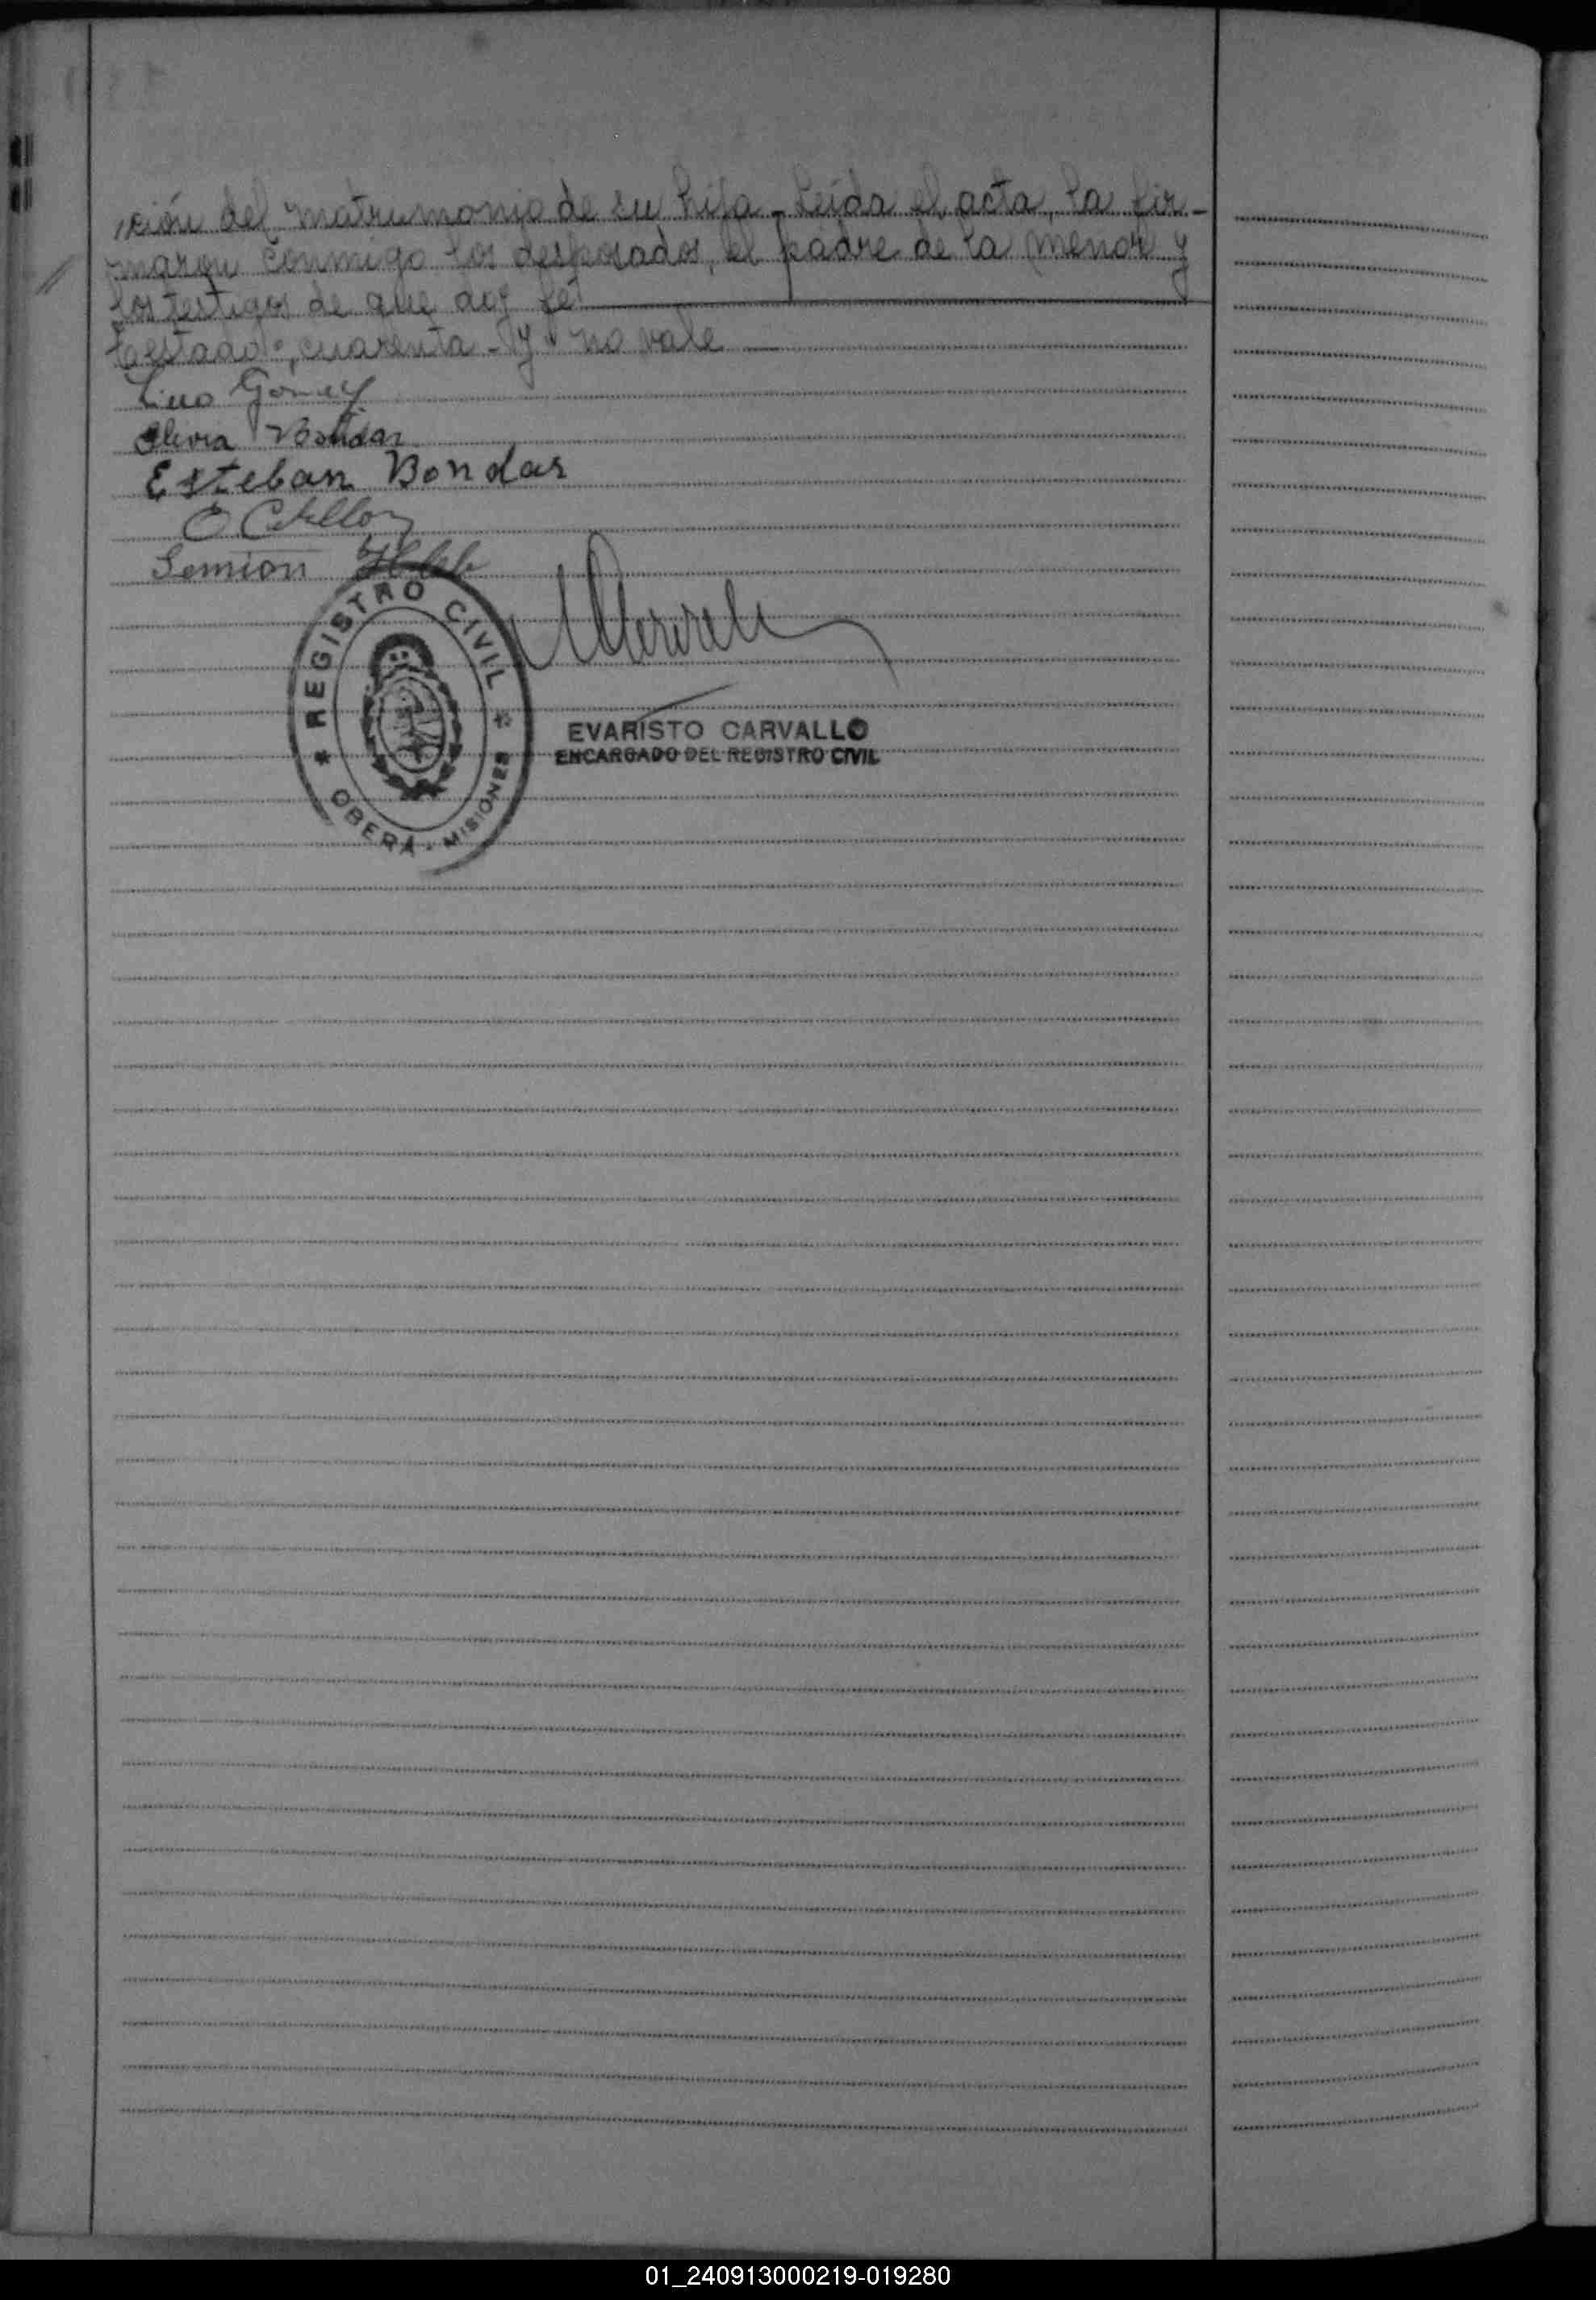 ción del matrimonio de su hija - Leída el acta, la fir-
maron conmigo los desposados, el padre de la menor y
los testigos de que doy fe
Testado: cuarenta - y - no vale
Lino Gomez
Olivia Bondar
Esteban Bondar
Semion
REGISTRO CIVIL
OBERÁ - MISIONES
EVARISTO CARVALLO
ENCARGADO DEL REGISTRO CIVIL
01_240913000219-019280